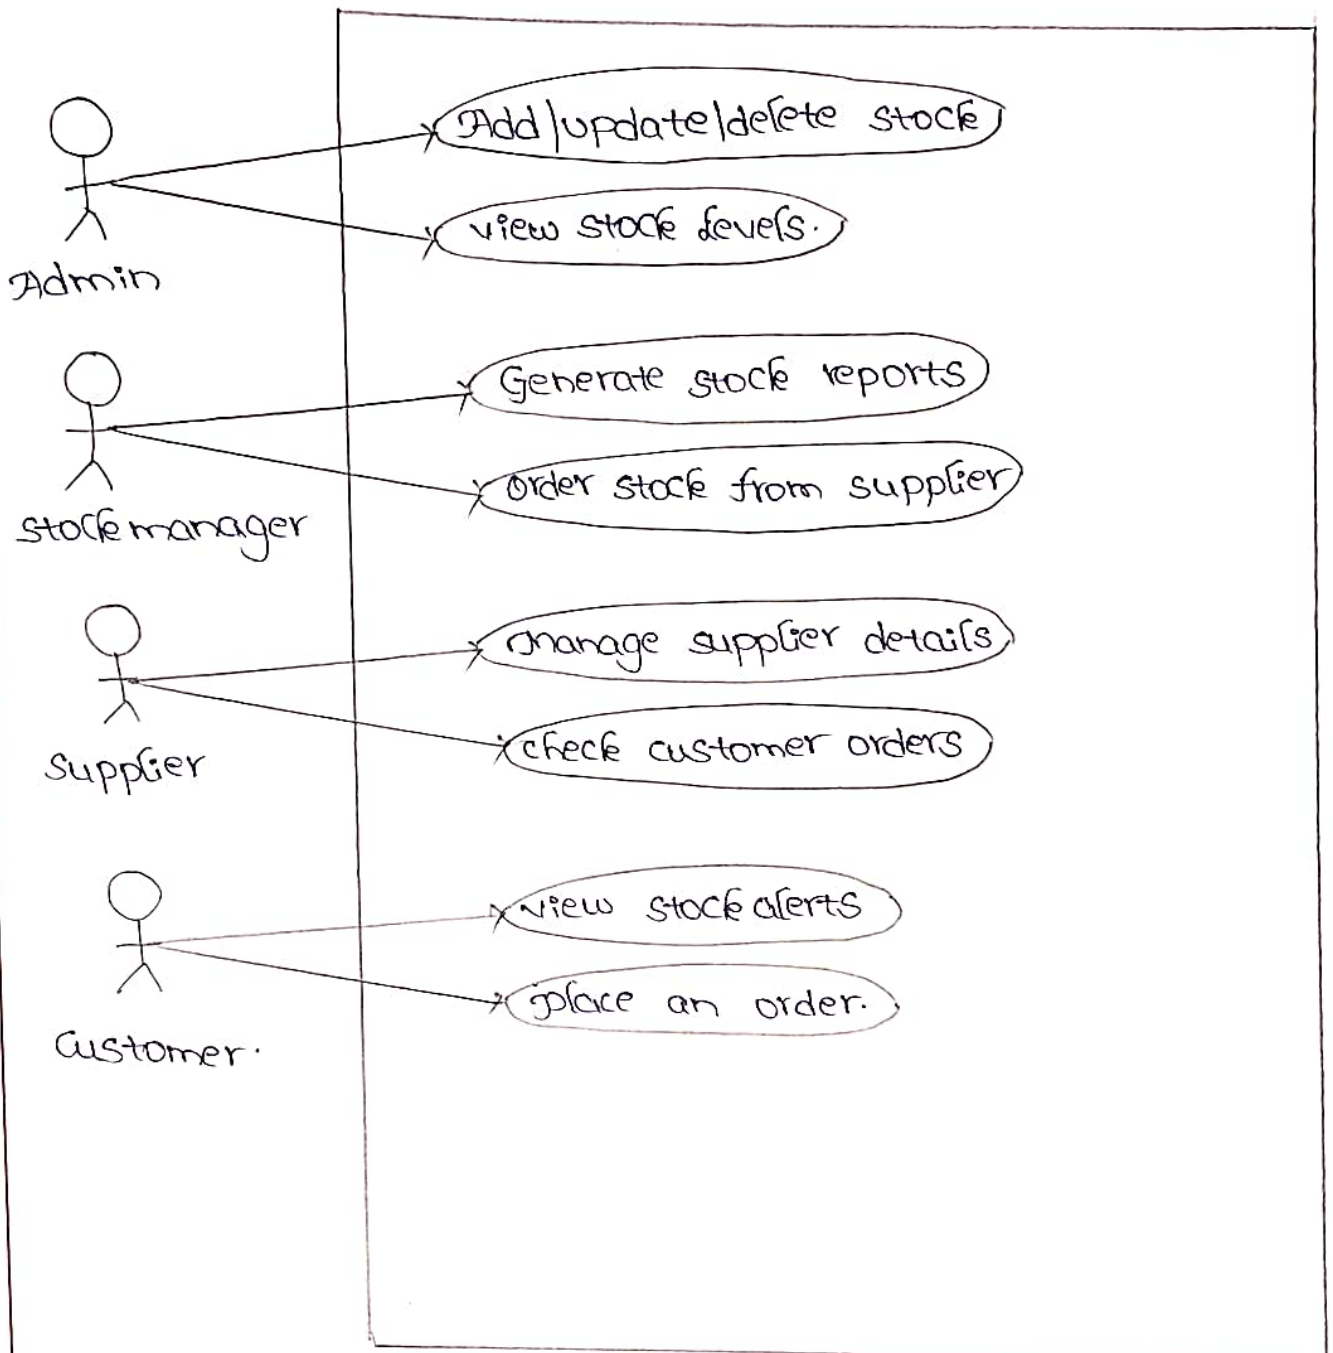 Add/update/delete stock
view stock levels.
Admin
Generate stock reports
order stock from supplier
stock manager
manage supplier details
check customer orders
supplier
view stock alerts
place an order.
Customer.